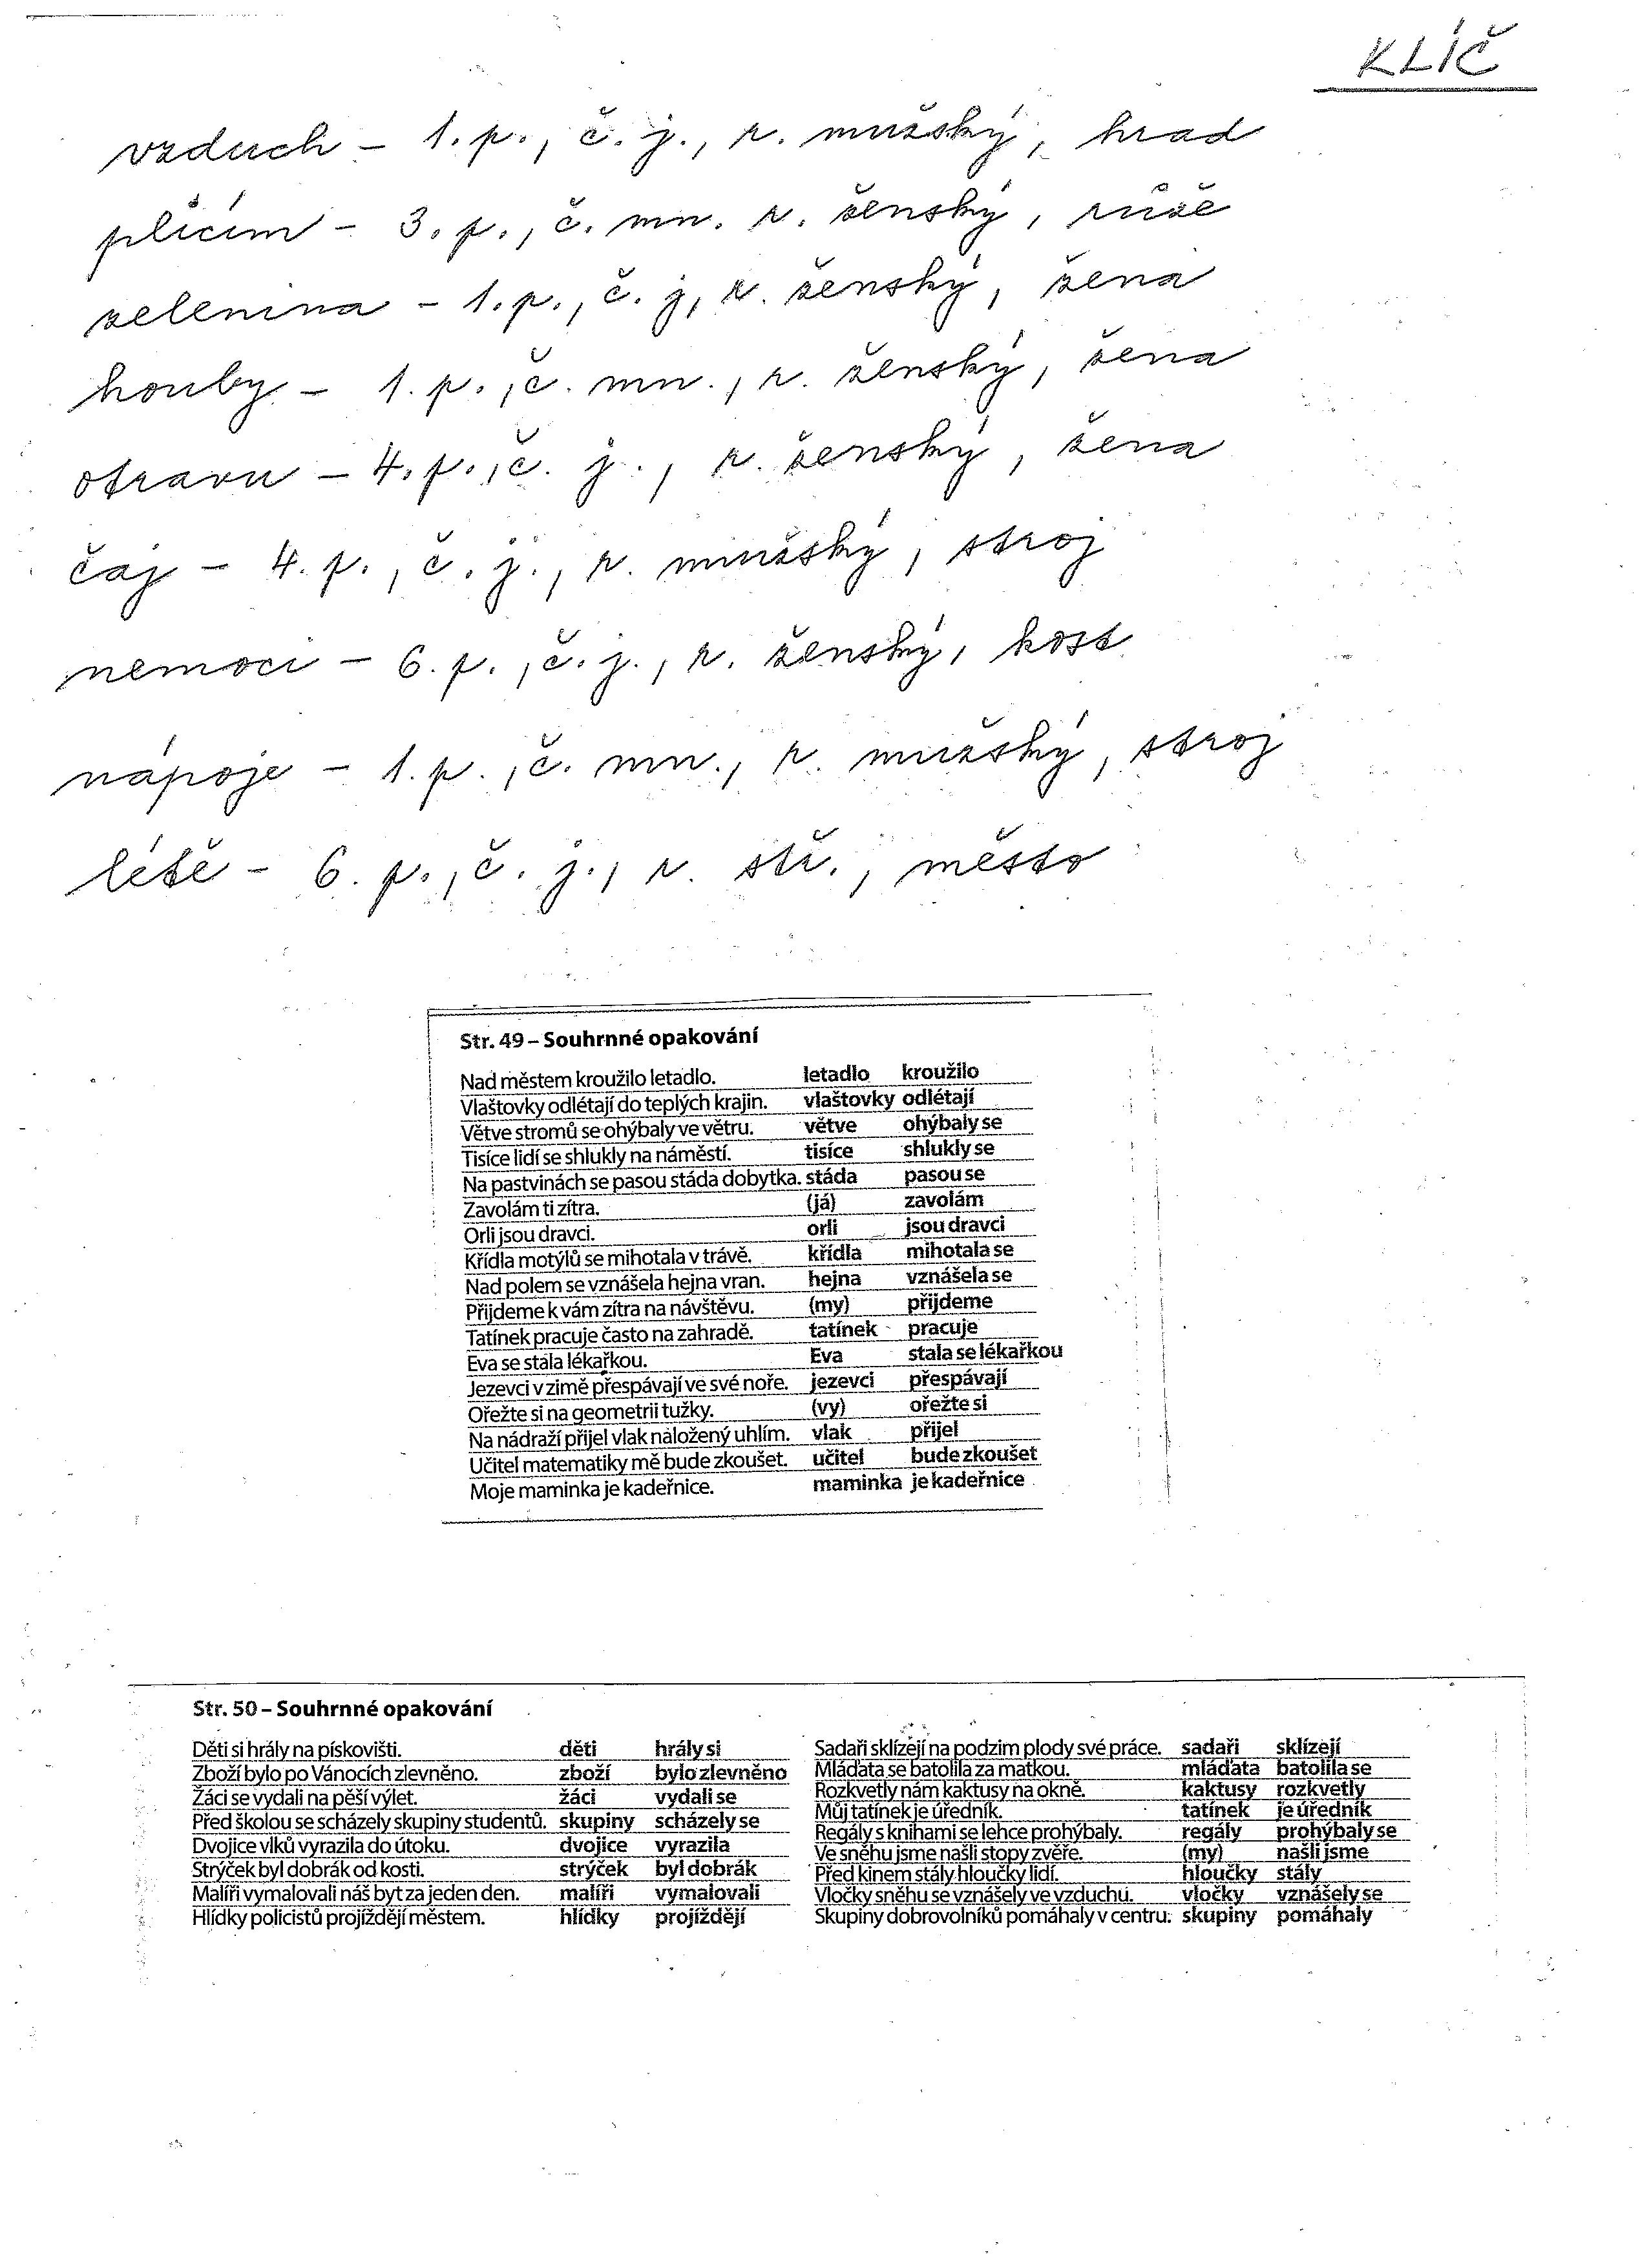 KLÍČ
vzduch – 1. p., č. j., r. mužský, hrad
plicím – 3. p., č. mn. r. ženský, růže
zelenina – 1. p., č. j, r. ženský, žena
houby – 1. p., č. mn., r. ženský, žena
otravu – 4. p., č. j., r. ženský, žena
čaj – 4. p., č. j., r. mužský, stroj
nemoci – 6. p., č. j., r. ženský, kost
nápoje – 1. p., č. mn., r. mužský, stroj
létě – 6. p., č. j., r. stř., město
Str. 49 – Souhrnné opakování
Nad městem kroužilo letadlo. letadlo kroužilo
Vlaštovky odlétají do teplých krajin. vlaštovky odlétají
Větve stromů se ohýbaly ve větru. větve ohýbaly se
Tisíce lidí se shlukly na náměstí. tisíce shlukly se
Na pastvinách se pasou stáda dobytka. stáda pasou se
Zavolám ti zítra. (já) zavolám
Orli jsou dravci. orli jsou dravci
Křídla motýlů se mihotala v trávě. křídla mihotala se
Nad polem se vznášela hejna vran. hejna vznášela se
Přijdeme k vám zítra na návštěvu. (my) přijdeme
Tatínek pracuje často na zahradě. tatínek pracuje
Eva se stala lékařkou. Eva stala se lékařkou
Jezevci v zimě přespávají ve své noře. jezevci přespávají
Ořežte si na geometrii tužky. (vy) ořežte si
Na nádraží přijel vlak naložený uhlím. vlak přijel
Učitel matematiky mě bude zkoušet. učitel bude zkoušet
Moje maminka je kadeřnice. maminka je kadeřnice
Str. 50 – Souhrnné opakování
Děti si hrály na pískovišti. děti hrály si
Zboží bylo po Vánocích zlevněno. zboží bylo zlevněno
Žáci se vydali na pěší výlet. žáci vydali se
Před školou se scházely skupiny studentů. skupiny scházely se
Dvojice vlků vyrazila do útoku. dvojice vyrazila
Strýček byl dobrák od kosti. strýček byl dobrák
Malíři vymalovali náš byt za jeden den. malíři vymalovali
Hlídky policistů projíždějí městem. hlídky projíždějí
Sadaři sklízejí na podzim plody své práce. sadaři sklízejí
Mláďata se batolila za matkou. mláďata batolila se
Rozkvetly nám kaktusy na okně. kaktusy rozkvetly
Můj tatínek je úředník. tatínek je úředník
Regály s knihami se lehce prohýbaly. regály prohýbaly se
Ve sněhu jsme našli stopy zvěře. (my) našli jsme
Před kinem stály hloučky lidí. hloučky stály
Vločky sněhu se vznášely ve vzduchu. vločky vznášely se
Skupiny dobrovolníků pomáhaly v centru. skupiny pomáhaly